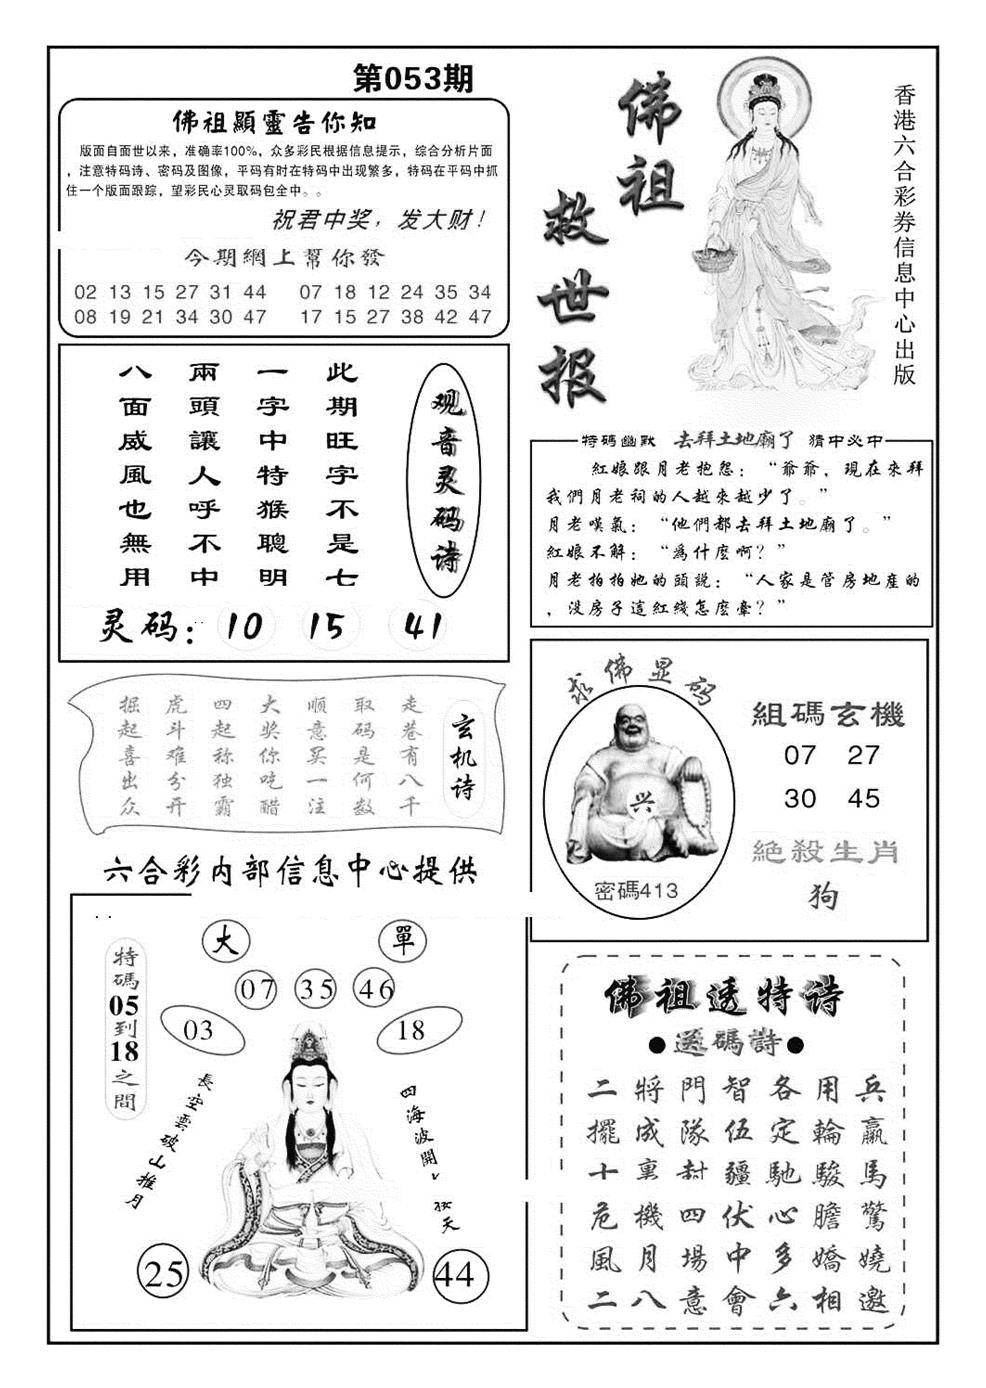 第053期
佛祖顯靈告你知
版面自面世以来，准确率100%，众多彩民根据信息提示，综合分析片面
，注意特码诗、密码及图像，平码有时在特码中出现繁多，特码在平码中抓
住一个版面跟踪，望彩民心灵取码包全中。。
祝君中奖，发大财！
今期網上幫你發
02 13 15 27 31 44 07 18 12 24 35 34
08 19 21 34 30 47 17 15 27 38 42 47
佛祖
救世报
香港六合彩券信息中心出版
观音灵码诗
此期旺字不是七
一字中特猴聰明
兩頭讓人呼不中
八面威風也無用
灵码： 10 15 41
特碼幽默 去拜土地廟了 猜中必中
紅娘跟月老抱怨：“爺爺，現在來拜
我們月老祠的人越來越少了。”
月老嘆氣：“他們都去拜土地廟了。”
紅娘不解：“爲什麼啊？”
月老拍拍她的頭説：“人家是管房地産的
，没房子這紅綫怎麼牽？”
玄机诗
走巷有八千
取码是何数
顺意买一注
大奖你吃醋
四起称独霸
虎斗难分开
掘起喜出众
求佛显码
兴
密碼413
組碼玄機
07 27
30 45
絕殺生肖
狗
六合彩内部信息中心提供
特碼05到18之間
大
單
07 35 46
03
18
長空雲破山推月
四海波開
天
25
44
佛祖透特诗
●透碼詩●
二將門智各用兵
擺成隊伍定輪贏
十裏封疆馳駿馬
危機四伏心膽驚
風月場中多嬌嬈
二八意會六相邀